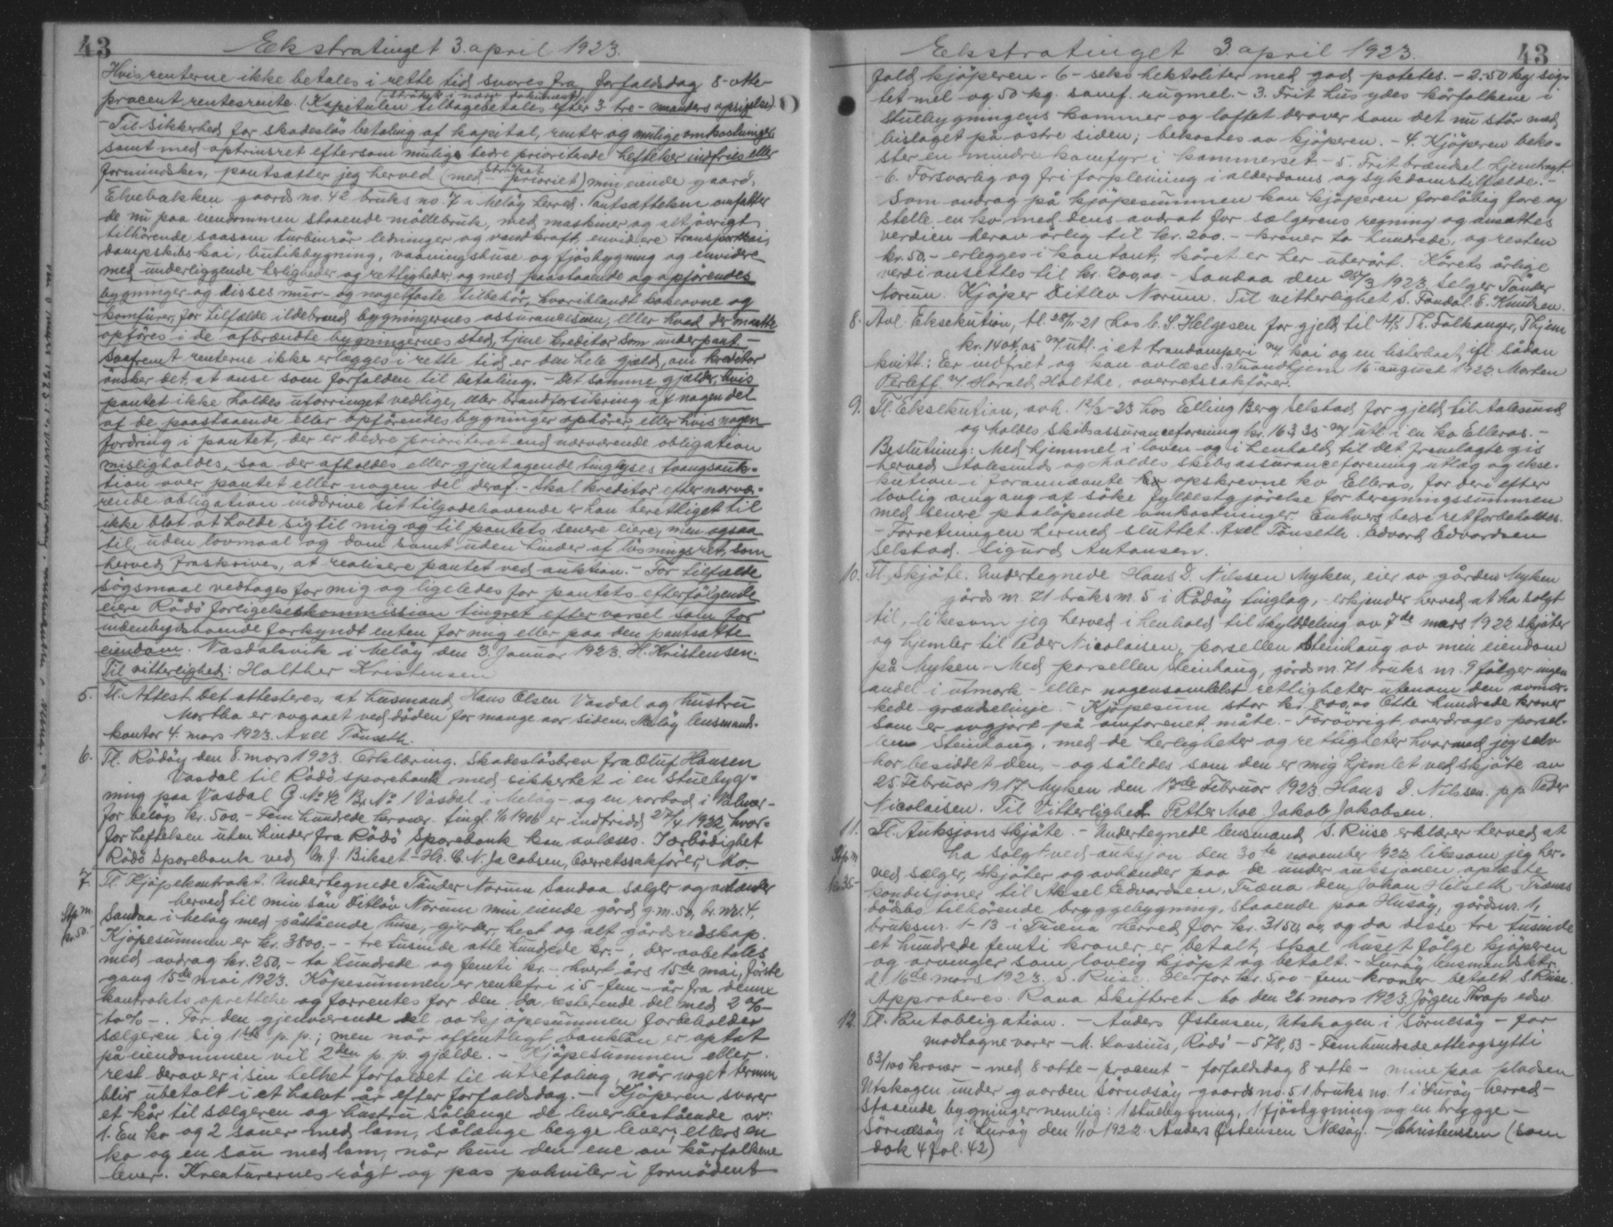 43
Ekstratinget 3. april 1923.
Hvis renterne ikke betales i rette tid svares fra forfaldsdag 8-otte-
procent rentesrente. (Kapitalen tilbagebetales efter 3 tre- maaneders opsigelse).
Til sikkerhed for skadesløs betaling af kapital, renter og mulige omkostninger
samt med optrinsret eftersom mulige bedre prioriterede heftelser indfries eller
formindskes, pantsætter jeg herved (med prioritet) min eiende gaard,
Elvebakken gaards no. 42 bruks no. 7 i Meløy herred. Pantsættelsen omfatter
de nu paa eiendommen staaende møllebruk, med maskiner og alt øvrigt
tilhørende saasom turbinrør ledninger og vandkraft, envidere transportkai,
dampskibskai, butikbygning, vaaningshuse og fjøsbygning og envidere
med underliggende herligheder og rettigheder og med paastaaende og opførendes
bygninger og disses mur- og nagelfaste tilbehør, hvoriblandt bakerovne og
komfürer, for tilfælde ildebrand bygningernes assurancesum, eller hvad der maatte
opføres i de afbrændte bygningernes sted, tjene kreditor som underpant. -
Saafremt renterne ikke erlægges i rette tid er den hele gjæld, om kreditor
ønsker det, at anse som forfalden til betaling. - Det samme gjælder, hvis
pantet ikke holdes uforringet vedlige, eller brandforsikring af nogen del
af de paastaaende eller opførendes bygninger ophører, eller hvis nogen
fordring i pantet, der er bedre prioriteret end nærværende obligation
misligholdes, saa der afholdes eller gjentagende tinglyses tvangsauk-
tion over pantet eller nogen del deraf. - Skal kreditor efter nærvæ-
rende obligation inddrive sit tilgodehavende er han berettiget til
ikke blot at holde sig til mig og til pantets senere eiere, men ogsaa
til, uden lovmaal og dom samt uden hinder af løsningsret, som
herved fraskrives, at realisere pantet ved auktion. - For tilfælde
søgsmaal vedtages for mig og ligeledes for pantets efterfølgende
eiere Rødø forligelseskommission tingret efter varsel som for
indenbygdsboende forkyndt enten for mig eller paa den pantsatte
eiendom. Vasdalsvik i Meløy den 3 Januar 1923. H. Kristensen.
Til vitterlighed: Halther Kristensen
5. Tl. Attest. Det attesteres, at husmand Hans Olsen Vasdal og hustru
Martha er avgaaet ved døden for mange aar siden. Meløy lensmands-
kontor 4. mars 1923. Axel Tønseth.
6. Tl. Rødøy den 8. mars 1923. Erklæring. Skadesløsbrev fra Oluf Hansen
Vasdal til Rødø sparebank med sikkerhet i en stuebyg-
ning paa Vasdal G. No 42 Br. No 1 Vasdal i Meløy - og en rorbod i
for beløp kr. 500,- Fem hundrede kroner. tingl. 1900 er indfriet 1922, hvor-
for heftelsen uten hinder fra Rødø Sparebank kan avlæses. Ærbødighet
Rødø Sparebank ved M. J. Bikset - Hr. C. N. Jacobsen, overretssakfører, Bo-
7. Tl. Kjøpekontrakt. Undertegnede Tønder Norum Sandaa sælger og avhænder
herved til min søn Ditløv Norum min eiende gård g.m. 50, br. nr. 4,
Stp.m.
kr. 50.-
Sandaa i Meløy med påstående huse, gjerder, hest og alt gårdsredskap.
Kjøpesummen er kr. 3800,-- tre tusinde otte hundrede kr. -, der avbetales
med avdrag kr. 250,- to hundrede og femti kr. - hvert års 15de mai, første
gang 15de mai 1923. Kjøpesummen er rentefri i 5 - fem - år fra denne
kontrakts oprettelse og forrentes for den da resterende del med 2 % -
to % -. For den gjenværende del av kjøpesummen forbeholder
sælgeren sig 1ste p. p.; men når offentligt banklån er optat
på eiendommen vil 2den p. p. gjælde. - Kjøpesummen eller
rest derav er i sin helhet forfaldet til utbetaling når noget termin
blir ubetalt i et halvt år efter forfaldsdag. - Kjøperen svarer
et kår til sælgeren og hustru sålænge de lever bestående av:
1. En ko og 2 sauer med lam, sålænge begge lever; ellers en
ko og en sau med lam, når kun den ene av kårfolkene
lever. Kreaturernes røgt og pas påhviler i fornødent
43
Ekstratinget 3. april 1923.
fald kjøperen. - 6 - seks hektoliter med god potetes. - 2. 50 kg. sig-
tet mel og 50 kg. samf. rugmel. - 3. Frit hus ydes kårfolkene i
stuebygningens kammer og loftet derover som det nu står med
bislaget på østre siden; bekostes av kjøperen. - 4. Kjøperen beko-
ster en mindre komfyr i kammerset. - 5. Frit brændsel hjembragt.
- 6. Forsvarlig og fri forpleining i alderdoms og sykdomstilfælde. -
Som avdrag på kjøpesummen kan kjøperen foreløbig fore og
stelle en ko med dens avdråt for sælgerens regning og ansættes
verdien herav årlig til kr. 200.- kroner to hundrede, og resten
kr. 50,- erlægges i kontant; kåret er her uberørt. Kårets årlige
verdi ansettes til kr. 200,00. - Sandaa den 25/3 1923, Selger Tønder
Norum. Kjøper Ditlev Norum. Til vitterlighet S. Fondal. E. Knutsen.
8. Avl. Eksekution, tl. 28/11-21 hos C. S. Helgesen for gjeld til A/S Th. Falkanger, Thjem
kr. 1404,05 m/ utl. i et trandamperi m/ kai og en listerbaat, ifl. sådan
kvitt.: Er indfriet og kan avlæses. Trondhjem 16 august 1922. Morten
Perleff. v/ Harald Holthe, overretssakfører.
9. Tl. Eksekution, avh. 12/3-23 hos Elling Berg Selstad for gjeld til Aalesund
og holdes skibsassuranceforening kr. 163.35 m/ utl. i en kø Elleros. -
Beslutning: Med hjemmel i loven og i henhold til det fremlagte gis
herved Aalesunds og holdes skibsassuranceforening utlæg og ekse-
kution i forannævnte opskrevne kø Elleros, for deri efter
lovlig omgang at søke fyldestgjørelse for beregningssummen
med senere paaløpende omkostninger. Enhvers bedre ret forbeholdes.
- Forretningen hermed sluttet. Axel Tønseth. Edvard Edvardsen
Selstad. Sigurd Antonsen.
10. Tl. Skjøte. Undertegnede Hans D. Nilssen Myken, eier av gården Myken
gårds nr. 71 bruks nr. 5 i Rødøy tinglag, erkjender herved at ha solgt
til, likesom jeg herved i henhold til skylddeling av 7de mars 1922 skjøter
og hjemler til Peder Nicolaisen, parsellen Steinhaug av min eiendom
på Myken. - Med parsellen Steinhaug, gårds nr. 71 bruks nr. 9 følger ingen
andel i utmark - eller nogensomhelst rettigheter utenom den avmær-
kede grændselinje. - Kjøpesum stor kr. 800,00 Otte hundrede kroner
som er avgjort på omforenet måte. - Forøvrigt overdrages parsel-
len Steinhaug, med de herligheter og rettigheter hvormed jeg selv
har besiddet den, - og således som den er mig hjemlet ved skjøte av
25. Februar 1917. Myken den 17de Februar 1923 Hans D. Nilssen. p.p. Peder
Nicolaisen. Til Vitterlighet Petter Moe Jakob Jakobsen.
11. Tl. Auksjonsskjøte. - Undertegnede lensmand S. Riise erklærer herved at
Stp.m.
kr. 35.-
ha solgt ved auksjon den 30te november 1922 likesom jeg her-
ved sælger, skjøter og avhænder paa de under auksjonen oplæste
kondisjoner til Aksel Edvardsen, Træna den Johan Helseth Trænas
dødsbo tilhørende bryggebygning, staaende paa Husøy, gårdsnr. 1,
bruksnr. 1-13 i Træna herred, for kr. 3150,00, og da disse tre tusinde
et hundrede femti kroner er betalt, skal huset følge kjøperen
og arvinger som lovlig kjøpt og betalt. - Lurøy lensmandsktr.
d. 16de mars 1923. S. Riise. Herfor kr. 5,00 - fem - kroner betalt S. Riise.
Approberes. Rana Skifteret Mo den 26. mars 1923. Jørgen Thrap edsv
12. Tl. Pantobligation. - Anders Østensen, Utskogen i Sørnesøy - for
mottagne varer - M. Lassius, Rødø - 578,53 - Femhundredeotteogsytti
53/100 kroner - med 8 otte - prosent - forfaldsdag 8 otte - mine paa pladsen
Utskogen under gaarden Sørnesøy - gaards no. 51 bruks no. 1 i Lurøy herred -
staaende bygninger nemlig: 1 stuebygning, 1 fjøsbygning og en brygge -
Sørnesøy i Lurøy den 1/10 1922. Anders Østensen Næsøy. - Christensen (som
dok 4 fol. 42)